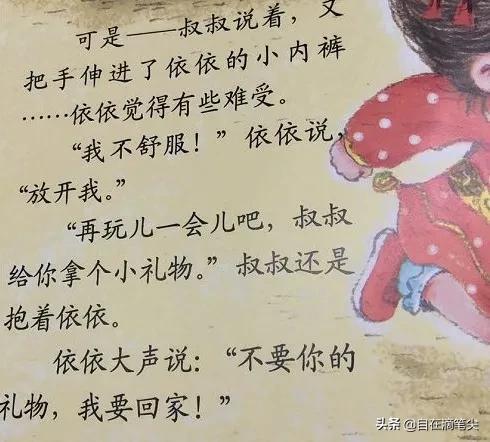 可是——叔叔说着，又
把手伸进了依依的小内裤
……依依觉得有些难受。
“我不舒服！”依依说，
“放开我。”
“再玩儿一会儿吧，叔叔
给你拿个小礼物。”叔叔还是
抱着依依。
依依大声说：“不要你的
礼物，我要回家！”
头条 @自在摘笔尖